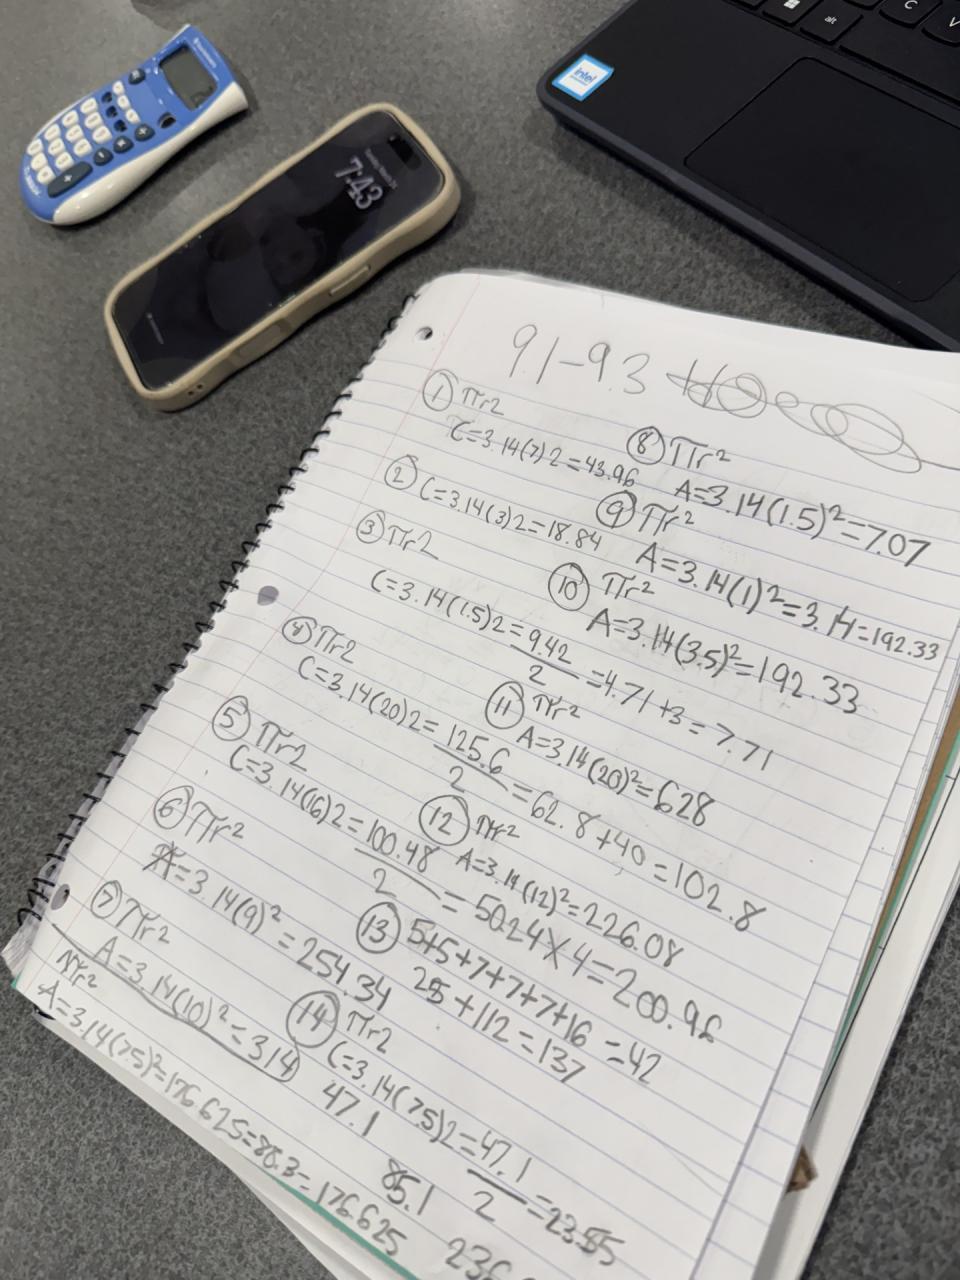 7:43
intel
alt
C
V
9.1-9.3
① πr2
C=3.14(7)2=43.96
② C=3.14(3)2=18.84
③ πr2
C=3.14(1.5)2=9.42/2=4.71+3=7.71
④ πr2
C=3.14(20)2=125.6/2=62.8+40=102.8
⑤ πr2
C=3.14(16)2=100.48/2=50.24×4=200.96
⑥ πr²
A=3.14(9)²=254.34
⑦ πr²
A=3.14(10)²=314
⑧ πr²
A=3.14(1.5)²=7.07
⑨ πr²
A=3.14(1)²=3.14=192.33
⑩ πr²
A=3.14(3.5)²=192.33
⑪ πr²
A=3.14(20)²=628
⑫ πr²
A=3.14(12)²=226.08
⑬ 5+5+7+7+7+16=42
25+112=137
⑭ πr2
C=3.14(7.5)2=47.1/2=23.55
47.1
85.1
πr²
A=3.14(7.5)²=176.625=88.3=176.625